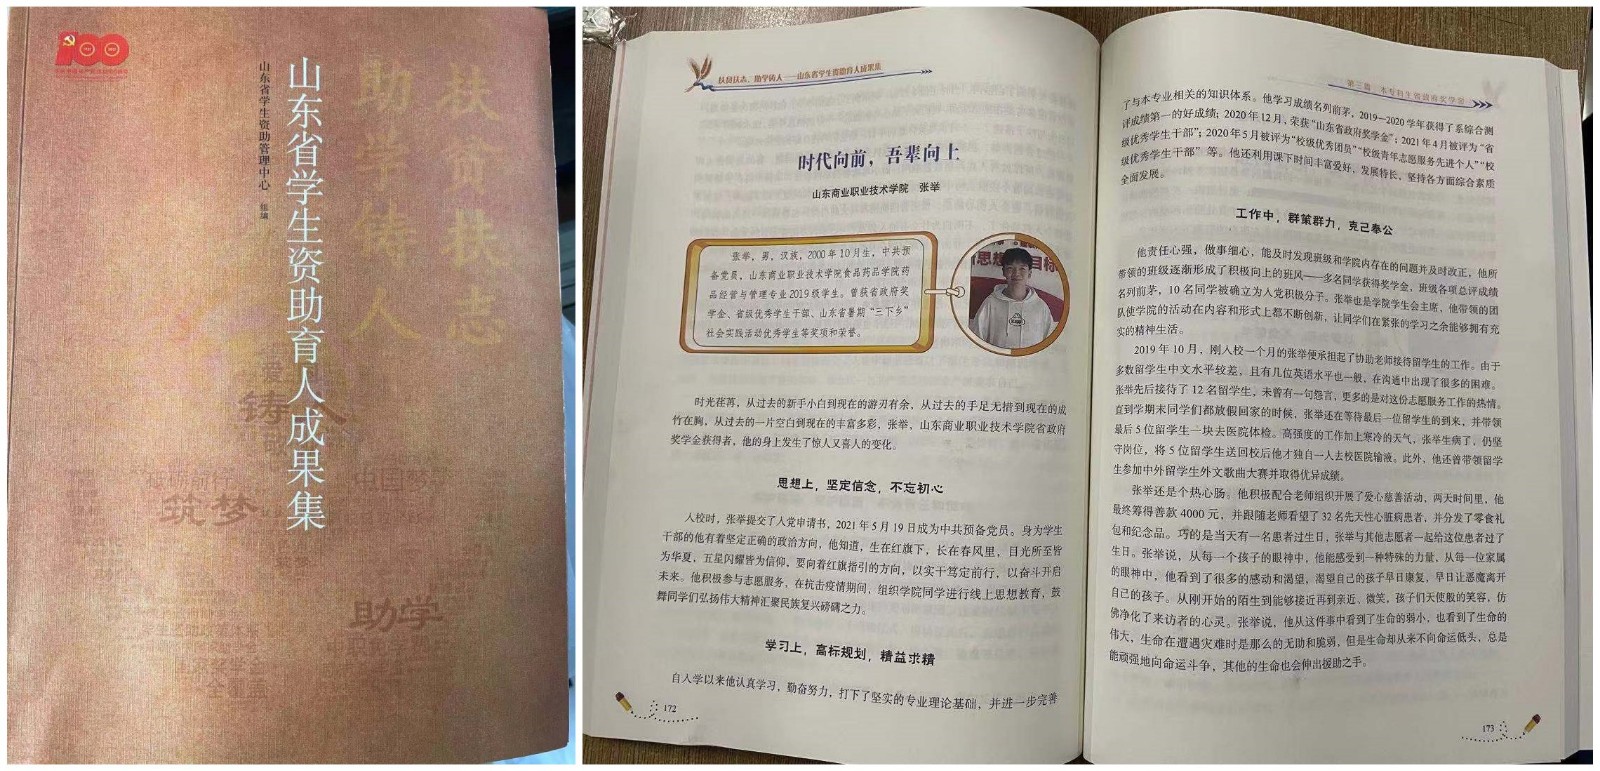 100
扶贫扶志
助学铸人
山东省学生资助育人成果集
山东省学生资助管理中心 组编
铸人
筑梦
中国梦
助学
全覆盖
扶贫扶志、助学铸人——山东省学生资助育人成果集
时代向前，吾辈向上
山东商业职业技术学院 张举
张举，男，汉族，2000年10月生，中共预
备党员，山东商业职业技术学院食品药品学院药
品经营与管理专业2019级学生。曾获省政府奖
学金、省级优秀学生干部、山东省暑期“三下乡”
社会实践活动优秀学生等奖项和荣誉。
时光荏苒，从过去的新手小白到现在的游刃有余，从过去的手足无措到现在的成
竹在胸，从过去的一片空白到现在的丰富多彩，张举，山东商业职业技术学院省政府
奖学金获得者，他的身上发生了惊人又喜人的变化。
思想上，坚定信念，不忘初心
入校时，张举提交了入党申请书，2021年5月19日成为中共预备党员。身为学生
干部的他有着坚定正确的政治方向，他知道，生在红旗下，长在春风里，目光所至皆
为华夏，五星闪耀皆为信仰，要向着红旗指引的方向，以实干笃定前行，以奋斗开启
未来。他积极参与志愿服务，在抗击疫情期间，组织学院同学进行线上思想教育，鼓
舞同学们弘扬伟大精神汇聚民族复兴磅礴之力。
学习上，高标规划，精益求精
自入学以来他认真学习，勤奋努力，打下了坚实的专业理论基础，并进一步完善
172
第三篇 本专科生省政府奖学金
了与本专业相关的知识体系。他学习成绩名列前茅，2019—2020学年获得了系综合测
评成绩第一的好成绩；2020年12月，荣获“山东省政府奖学金”；2021年4月被评为“省
级优秀学生干部”；2020年5月被评为“校级优秀团员”“校级青年志愿服务先进个人”“校
级优秀学生干部”等。他还利用课下时间丰富爱好，发展特长，坚持各方面综合素质
全面发展。
工作中，群策群力，克己奉公
他责任心强，做事细心，能及时发现班级和学院内存在的问题并及时改正，他所
带领的班级逐渐形成了积极向上的班风——多名同学获得奖学金，班级各项总评成绩
名列前茅，10名同学被确立为入党积极分子。张举也是学院学生会主席，他带领的团
队使学院的活动在内容和形式上都不断创新，让同学们在紧张的学习之余能够拥有充
实的精神生活。
2019年10月，刚入校一个月的张举便承担起了协助老师接待留学生的工作。由于
多数留学生中文水平较差，且有几位英语水平也一般，在沟通中出现了很多的困难。
张举先后接待了12名留学生，未曾有一句怨言，更多的是对这份志愿服务工作的热情。
直到学期末同学们都放假回家的时候，张举还在等待最后一位留学生的到来，并带领
最后5位留学生一块去医院体检。高强度的工作加上寒冷的天气，张举生病了，仍坚
守岗位，将5位留学生送回校后他才独自一人去校医院输液。此外，他还曾带领留学
生参加中外留学生外文歌曲大赛并取得优异成绩。
张举还是个热心肠。他积极配合老师组织开展了爱心慈善活动，两天时间里，他
最终筹得善款4000元，并跟随老师看望了32名先天性心脏病患者，并分发了零食礼
包和纪念品。巧的是当天有一名患者过生日，张举与其他志愿者一起给这位患者过了
生日。张举说，从每一个孩子的眼神中，他能感受到一种特殊的力量，从每一位家属
的眼神中，他看到了很多的感动和渴望，渴望自己的孩子早日康复，早日让恶魔离开
自己的孩子。从刚开始的陌生到能够接近再到亲近、微笑，孩子们天使般的笑容，仿
佛净化了来访者的心灵。张举说，他从这件事中看到了生命的弱小，也看到了生命的
伟大，生命在遭遇灾难时是那么的无助和脆弱，但是生命却从来不向命运低头，总是
能顽强地向命运斗争，其他的生命也会伸出援助之手。
173